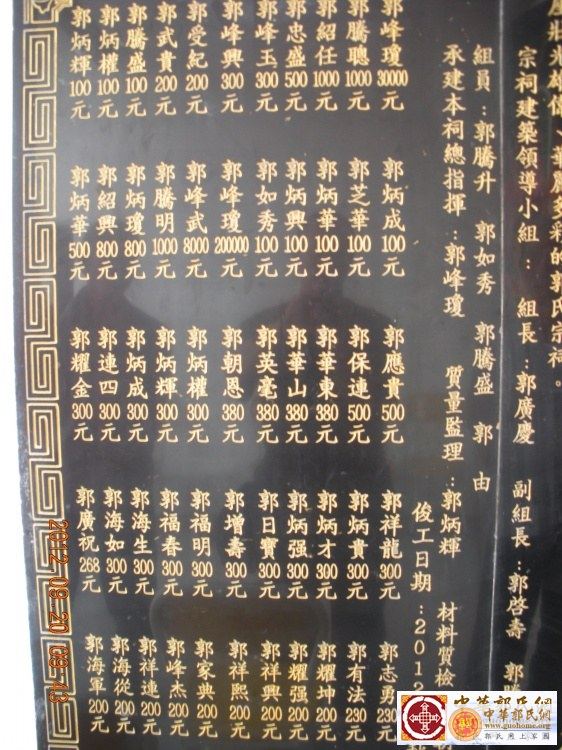 屋壯光雄偉、華麗多彩的郭氏宗祠。
宗祠建築領導小組：組長：郭廣慶 副組長：郭啓壽 郭
組員：郭騰升 郭如秀 郭騰盛 郭由
承建本祠總指揮：郭峰瓊 質量監理：郭炳輝 材料質檢
俊工日期：2012
郭峰瓊30000元
郭騰聰1000元
郭紹任1000元
郭忠盛500元
郭峰玉300元
郭峰興300元
郭受紀200元
郭武貴200元
郭騰盛100元
郭炳權100元
郭炳輝100元
郭炳成100元
郭芝華100元
郭炳華100元
郭炳興100元
郭如秀100元
郭峰瓊200000元
郭峰武8000元
郭騰明1000元
郭炳瓊800元
郭紹興800元
郭炳華500元
郭應貴500元
郭保連500元
郭華東380元
郭華山380元
郭英毫380元
郭朝恩380元
郭炳權300元
郭炳輝300元
郭炳成300元
郭連四300元
郭耀金300元
郭祥龍300元
郭炳貴300元
郭炳才300元
郭炳强300元
郭日寶300元
郭增壽300元
郭福明300元
郭福春300元
郭海生300元
郭海如300元
郭廣祝268元
郭志勇230元
郭有法230元
郭耀坤200元
郭耀强200元
郭祥興200元
郭祥熙200元
郭家典200元
郭峰杰200元
郭祥連200元
郭海從200元
郭海軍200元
2012 09 20 09:43
中華郭氏網
中華郭氏網
www.guohome.org
郭氏網上家園